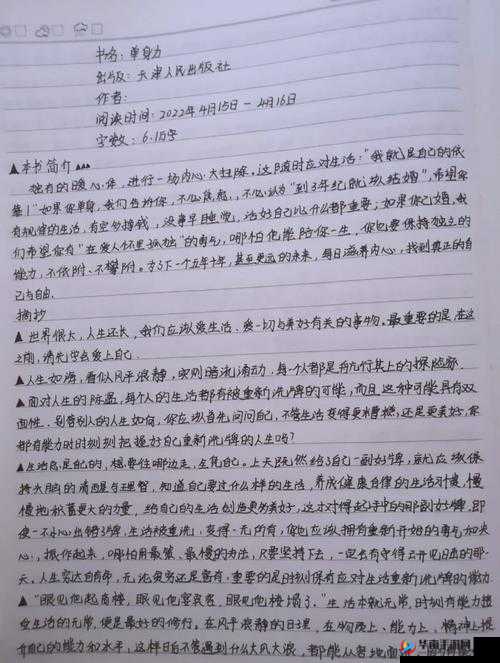 书名：单身力
出版：天津人民出版社
作者：
阅读时间：2022年4月15日－4月16日
字数：6.15号
▲本书简介▲▲▲
独有的暖心体，进行一场内心大扫除。这随时应对生活："我就是自己的依
靠！"如果你单身，我们告诉你，不必焦急，不必认为"到了年纪就该结婚"，希望你
有规律的生活，有空多挣钱，没事早睡觉，活好自己比什么都重要；如果你已婚，我
们希望你有"在爱人怀里孤独"的勇气，哪怕他能陪你一生，你也要保持独立的
能力，不依附、不攀附。为了下一个五年十年，甚至更远的未来，每日滋养内心，找到真正的自
己与自由.
摘抄
▲世界很大，人生还长，我们应该爱生活、爱一切与美好有关的事物。最重要的是，在这
之前，请先学会爱上自己.
▲人生如海，看似风平浪静，实则暗流涌动，每一个人都是在航行其上的探险家.
▲面对人生的际遇，每个人的生活都有被重新洗牌的可能，而且这种可能具有双
面性. 别管别人的人生如何，你应该首先问问自己，不管生活变得更糟糕，还是更美好，你
都有能力时时刻刻把握好自己重新洗牌的人生吗？
▲生活总是自己的，想要往哪边走，全凭自己。上天既然给了自己一副好牌，就应该保
持大脑的清醒与理智，知道自己要过什么样的生活，养成健康自律的生活习惯，慢
慢地积蓄更大的力量，给自己的生活创造更多美好，这才对得起手中的那副好牌. 即
使一不小心出错了牌，生活被重洗，变得一无所有，你也应该拥有重新开始的勇气和决
心，振作起来，哪怕用最笨、最慢的办法，只要坚持下去，一定会有守得云开见日出的那一
天。人生穷达由有命，无论贫穷还是富有，重要的是时刻保有应对生活重新洗牌的能力.
▲"眼见他起高楼，眼见他宴宾客，眼见他楼塌了."生活本就无常，时刻有能力接
受生活的无常，便是最好的修行，在风平浪静的日子里，在物质上、能力上、精神上提
升自己的能力和水平，这样日后不管遇到什么大风大浪，都能从容地面对
华南手游网